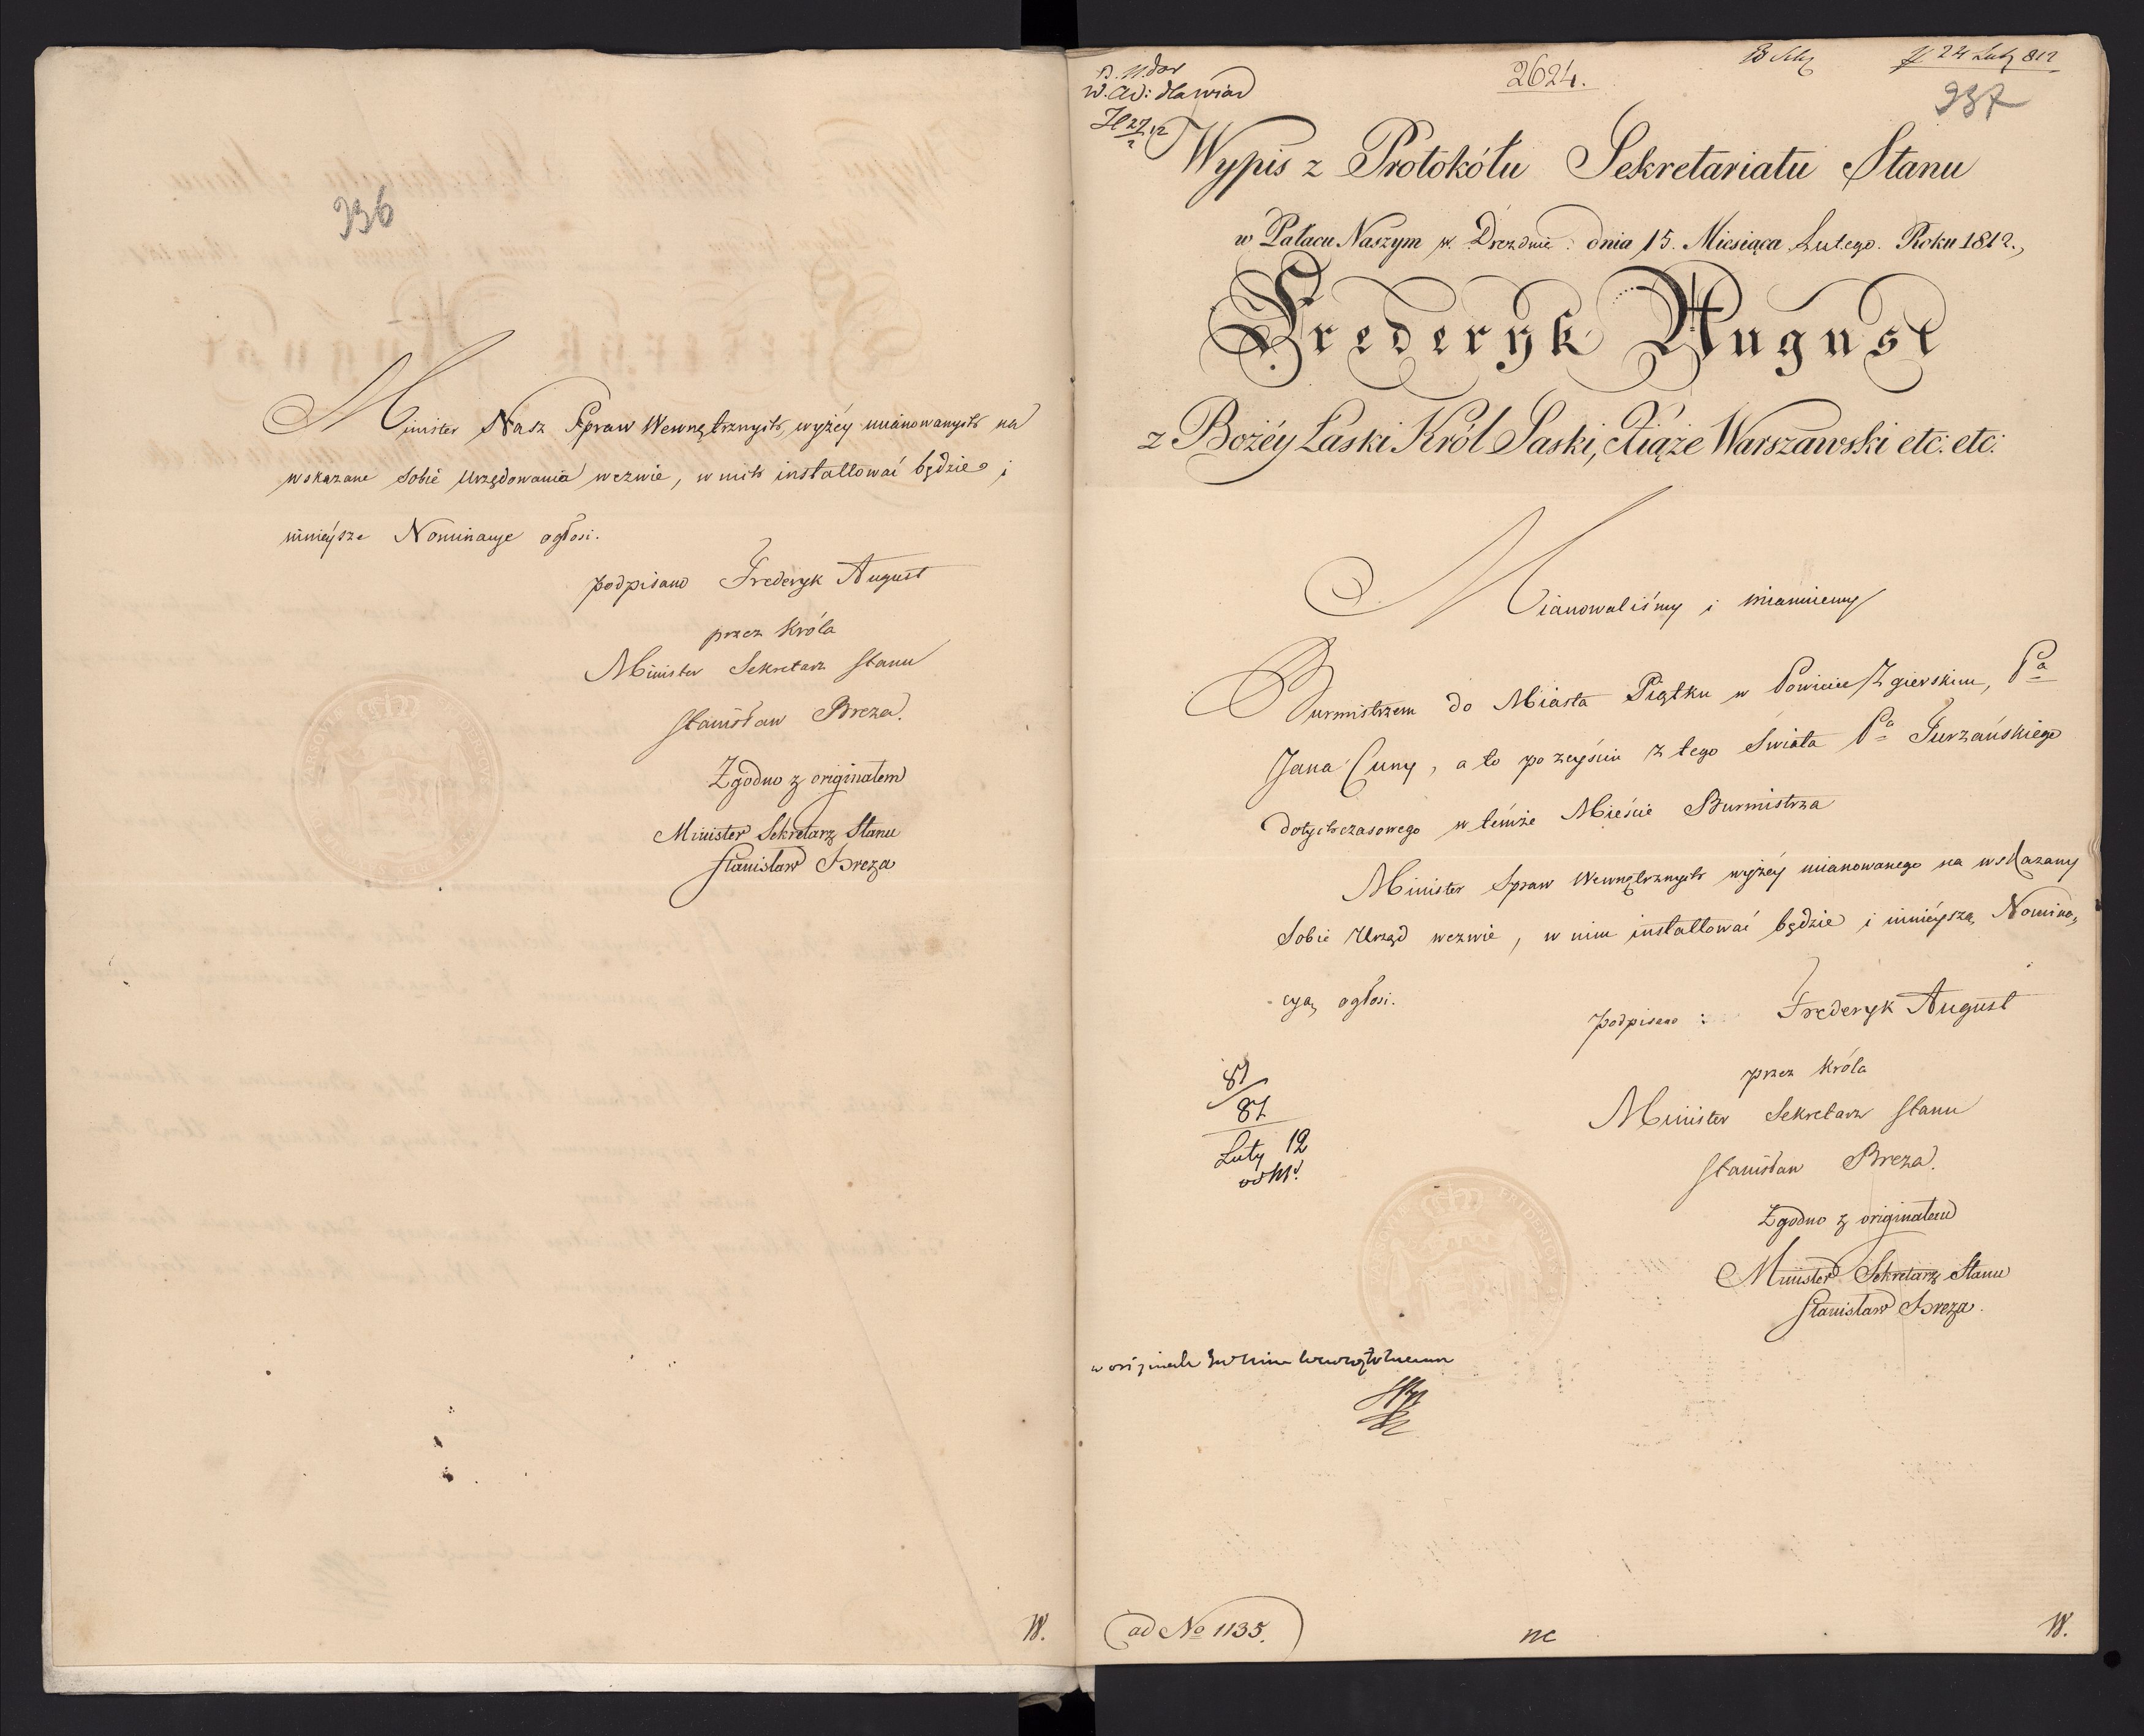 936
Minister Nasz Spraw Wewnętrznych, wyżéy mianowanych na
wskazane Sobie Urzędowania wezwie, w nich installować będzie i
ninieysze Nominacye ogłosi.
podpisano Frederyk August
przez Króla
Minister Sekretarz Stanu
Stanisław Breza.
Zgodno z originałem
Minister Sekretarz Stanu
Stanisław Breza
W.
W. : dla wiad
2624.
24 Luty 812
937
Wypis z Protokółu Sekretariatu Stanu
w Pałacu Naszym w Dreznie dnia 15. Miesiąca Lutego. Roku 1812.,
Frederyk August
z Bożéy Łaski Król Saski, Xiąże Warszawski etc. etc:
Mianowaliśmy i mianuiemy
Burmistrzem do Miasta Piątku w Powiecie Zgierskim, Pa
Jana Cuny, a to po zeyściu z tego Świata Pa Turzańskiego
dotychczasowego w témże Mieście Burmistrza
Minister Spraw Wewnętrznych wyżéy mianowanego na wskazany
Sobie Urząd wezwie, w nim installować będzie i ninieyszą Nomina,,
cyą ogłosi.
podpisano : Frederyk August
przez Króla
Minister Sekretarz Stanu
Stanisław Breza.
Zgodno z originałem
Minister Sekretarz Stanu
Stanisław Breza.
87
Luty 12
w originale
ad No 1135.
W.